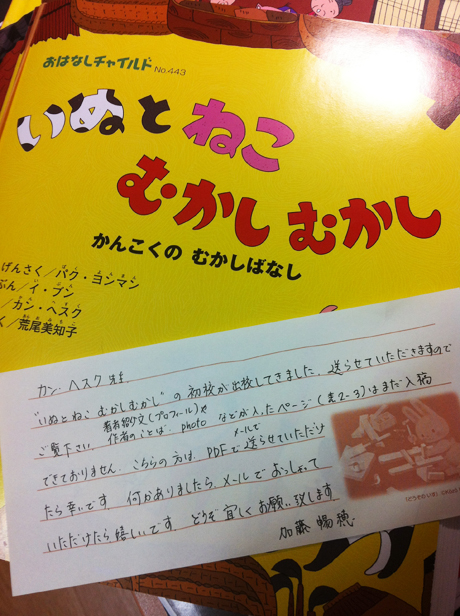 おはなしチャイルド No.443
いぬとねこ
むかしむかし
かんこくの むかしばなし
げんさく/パク・ヨンマン
ぶん/イ・ブン
/カン・ヘスク
く/荒尾美知子
カン・ヘスク 様
"いぬとねこ むかしむかし" の初校が出校してきました。送らせていただきますので
著者紹介文(プロフィール)や
ご覧下さい。作者のことば、photo などが入ったページ(表2-3)はまだ入稿
メールで
できておりません。こちらの方は、PDFで送らせていただけ
たら幸いです。何かありましたら、メールでおっしゃって
いただけたら嬉しいです。どうぞ宜しくお願い致します。
加藤 暢穂